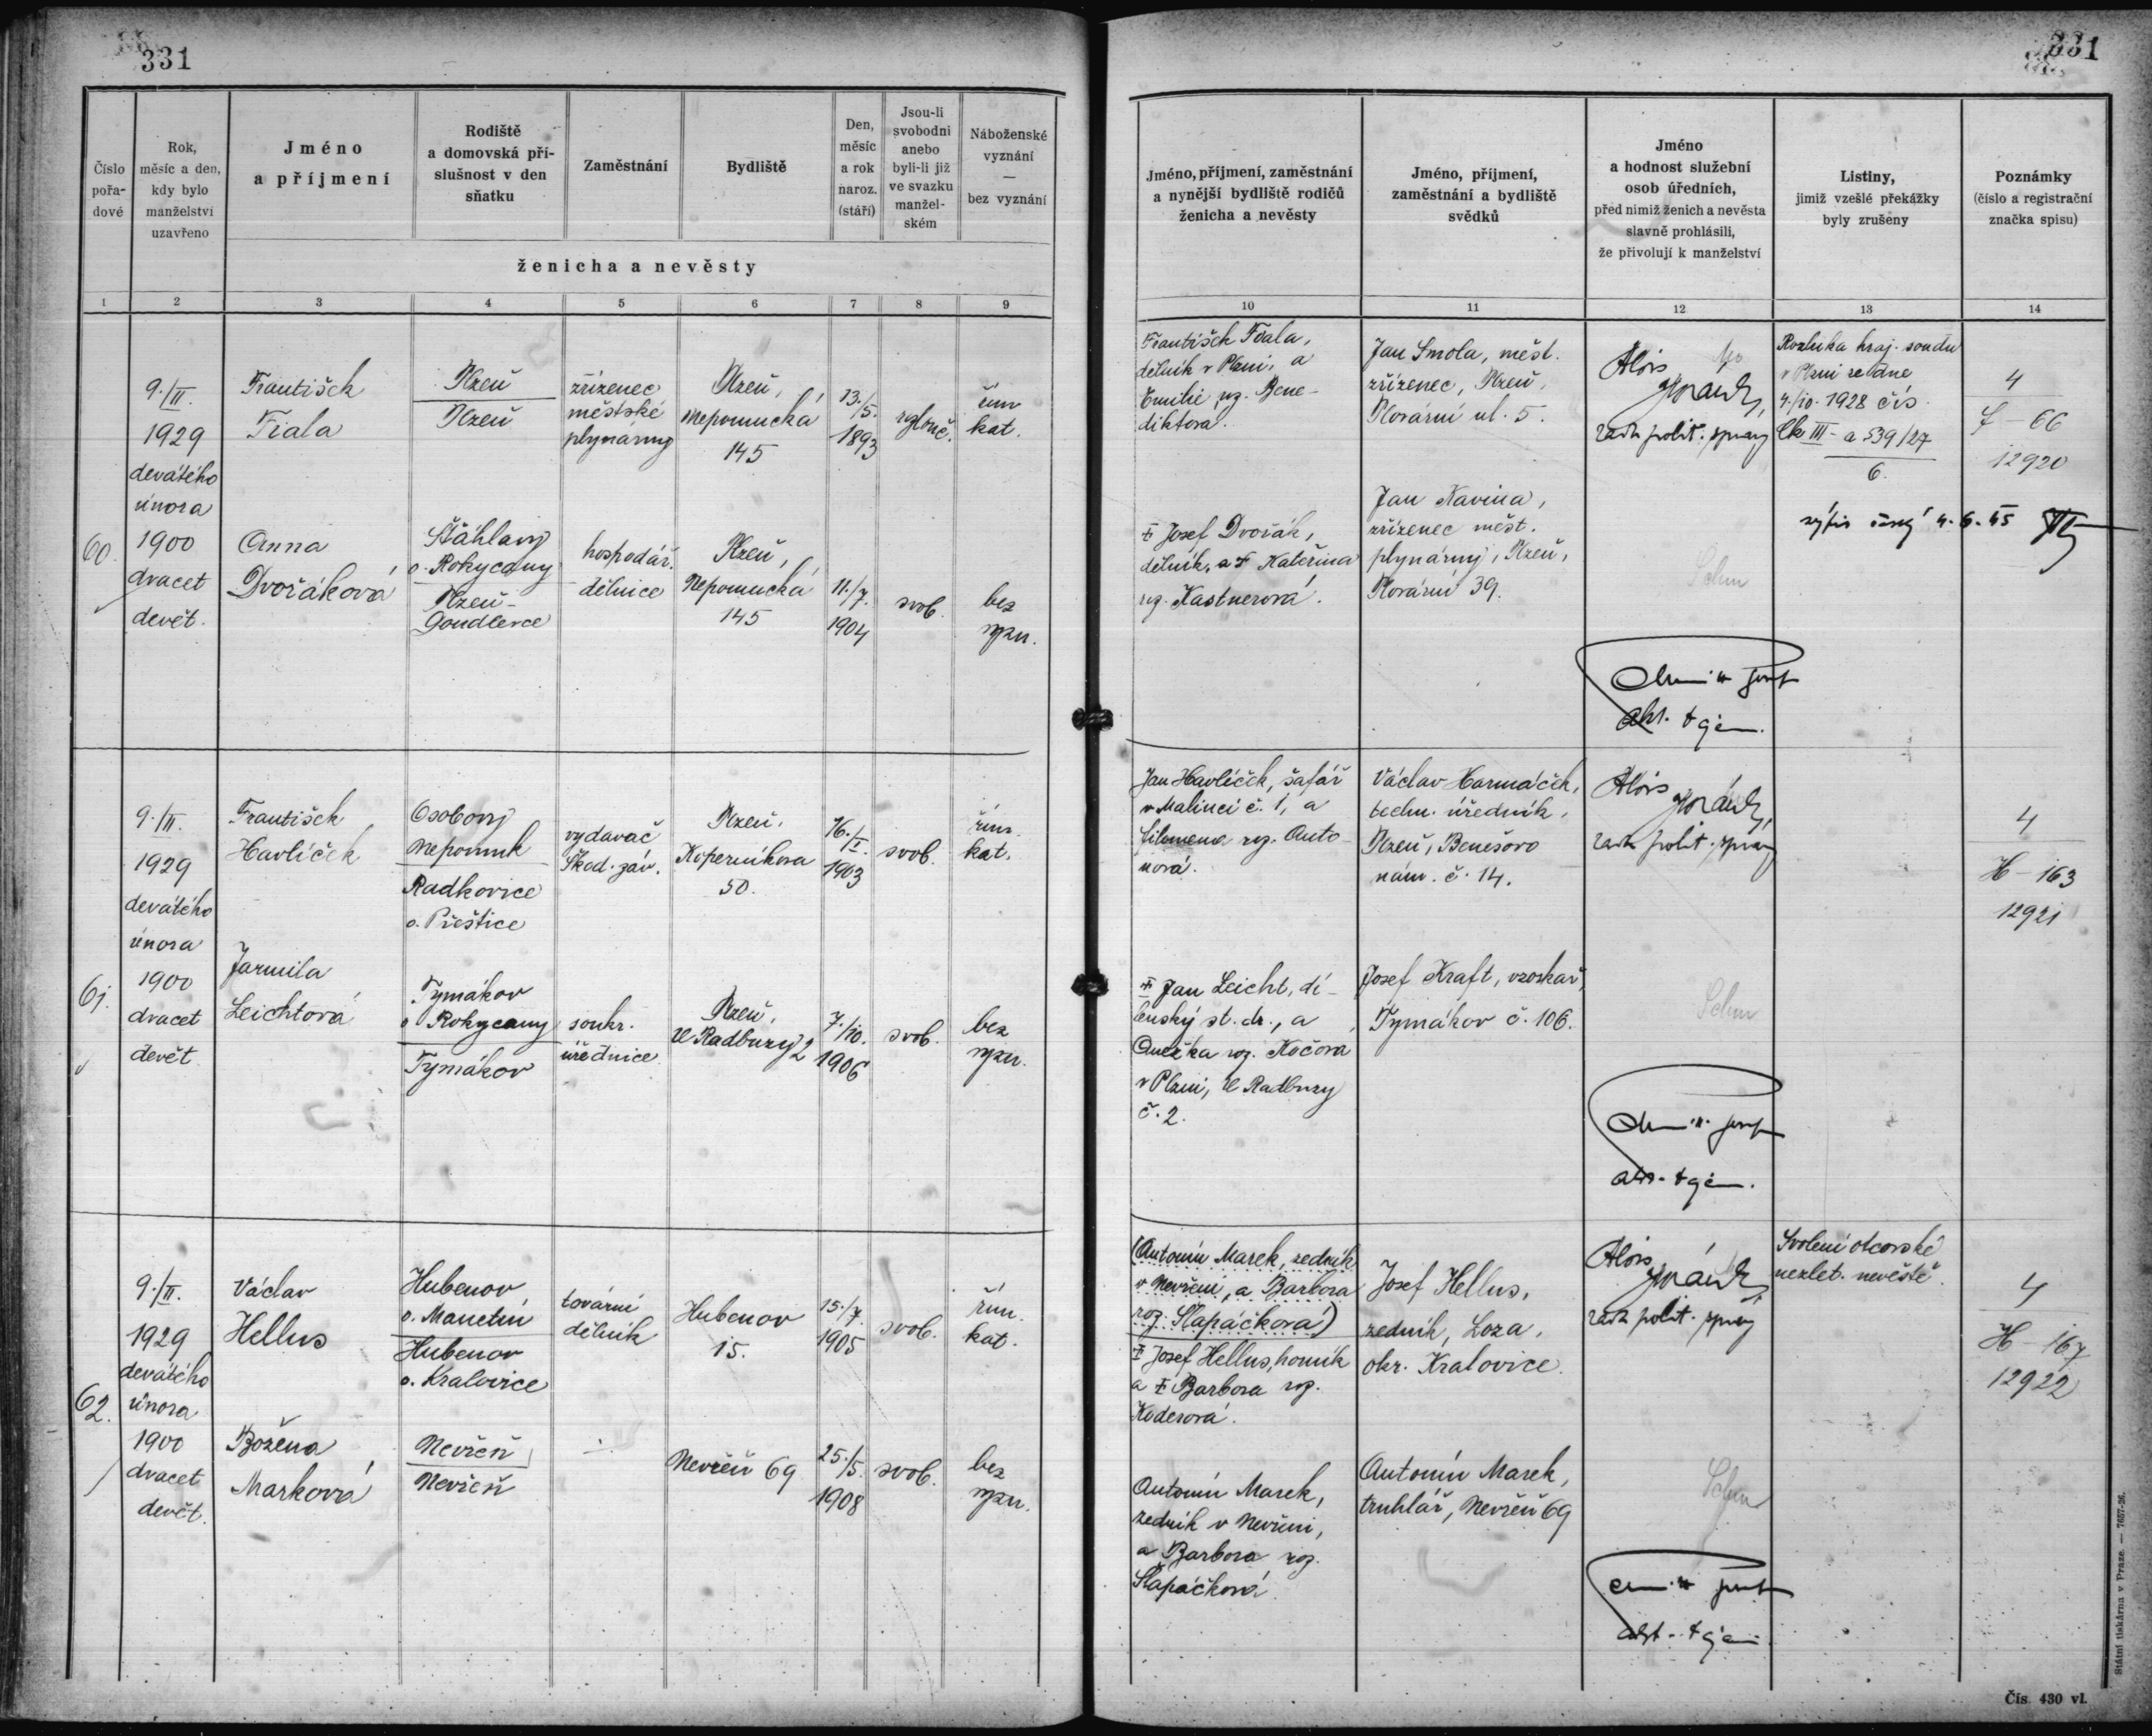 331
331
Číslo
pořa-
dové
Rok,
měsíc a den,
kdy bylo
manželství
uzavřeno
Jméno
a příjmení
Rodiště
a domovská pří-
slušnost v den
sňatku
Zaměstnání
Bydliště
Den,
měsíc
a rok
naroz.
(stáří)
Jsou-li
svobodni
anebo
byli-li již
ve svazku
manžel-
ském
Náboženské
vyznání
—
bez vyznání
ženicha a nevěsty
Jméno, příjmení, zaměstnání
a nynější bydliště rodičů
ženicha a nevěsty
Jméno, příjmení,
zaměstnání a bydliště
svědků
Jméno
a hodnost služební
osob úředních,
před nimiž ženich a nevěsta
slavně prohlásili,
že přivolují k manželství
Listiny,
jimiž vzešlé překážky
byly zrušeny
Poznámky
(číslo a registrační
značka spisu)
1 2 3 4 5 6 7 8 9 10 11 12 13 14
60.
9./II.
1929
devátého
února
1900
dvacet
devět.
František
Fiala
Plzeň
Plzeň
zřízenec
městské
plynárny
Plzeň,
Nepomucká
145
13./5.
1893
rozlouč.
řím.
kat.
František Fiala,
dělník v Plzni, a
Emilie roz. Bene-
diktova.
Jan Smola, měst.
zřízenec, Plzeň,
Plovární ul. 5.
Alois
Horák,
rada polit. správy
Rozluka kraj. soudu
v Plzni ze dne
4./10. 1928 čís.
Ck III - a 539/27
6.
4
F - 66
12920
Anna
Dvořáková
Šťáhlavy
o. Rokycany
Plzeň-
Doudlevce
hospodář.
dělnice
Plzeň,
Nepomucká
145
11./7.
1904
svob.
bez
vyzn.
Ɨ Josef Dvořák,
dělník, a Ɨ Kateřina
roz. Kastnerová.
Jan Kavina,
zřízenec měst.
plynárny, Plzeň,
Plovární 39.
4. 6. 45
61.
9./II.
1929
devátého
února
1900
dvacet
devět
František
Havlíček
Osobovy
Nepomuk
Radkovice
o. Přeštice
vydavač
Škod. záv.
Plzeň,
Koperníkova
50.
16./I.
1903
svob.
řím.
kat.
Jan Havlíček, šafář
v Malinci č. 1, a
filomena roz. Anto-
nová.
Václav Harmáček,
techn. úředník,
Plzeň, Benešovo
nám. č. 14.
Alois
Horák,
rada polit. správy
4
H - 163
12921
Jarmila
Leichtová
Tymákov
o Rokycany
Tymákov
soukr.
úřednice
Plzeň,
U Radbuzy 2
7./10.
1906
svob.
bez
vyzn.
Ɨ Jan Leicht, dí-
lenský st. dr., a
Anežka roz. Kočova
v Plzni, U Radbuzy
č. 2.
Josef Kraft, vzorkař,
Tymákov č. 106.
62.
9./II.
1929
devátého
února
1900
dvacet
devět.
Václav
Hellus
Hubenov,
o. Manetín
Hubenov
o. Kralovice
tovární
dělník
Hubenov
15.
15./7.
1905
svob.
řím.
kat.
(Antonín Marek, zedník
v Nevřeni, a Barbora
roz. Slapáčková)
Ɨ Josef Hellus, horník
a Ɨ Barbora roz.
Koderová.
Josef Hellus,
zedník, Loza,
okr. Kralovice.
Alois
Horák,
rada polit. správy
Svolení otcovské
nezlet. nevěstě.
4
H - 167
12922
Božena
Marková
Nevřeň
Nevřeň
Nevřeň 69
25./5.
1908
svob.
bez
vyzn.
Antonín Marek,
zedník v Nevřeni,
a Barbora roz.
Slapáčková
Antonín Marek,
truhlář, Nevřeň 69
Státní tiskárna v Praze. — 7657-26.
Čís. 430 vl.